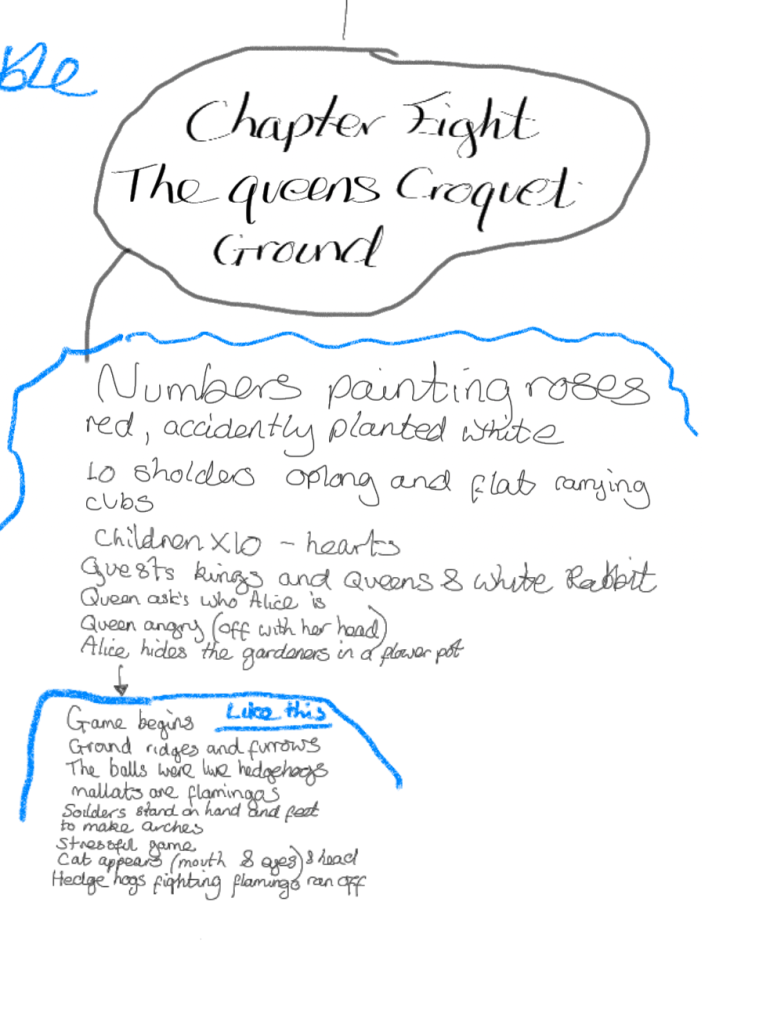 ble
Chapter Eight
The queens Croquet
Ground
Numbers painting roses
red, accidently planted white
10 sholders oplong and flat carrying
cubs
Children x10 - hearts
Guests kings and Queens & White Rabbit
Queen ask's who Alice is
Queen angry (off with her head)
Alice hides the gardeners in a flower pot
Like this
Game begins
Ground ridges and furrows
The balls were live hedgehogs
mallats are flamingas
Soilders stand on hand and feet
to make arches
Stressful game
Cat appears (mouth & eyes) & head
Hedge hogs fighting flamingo ran off